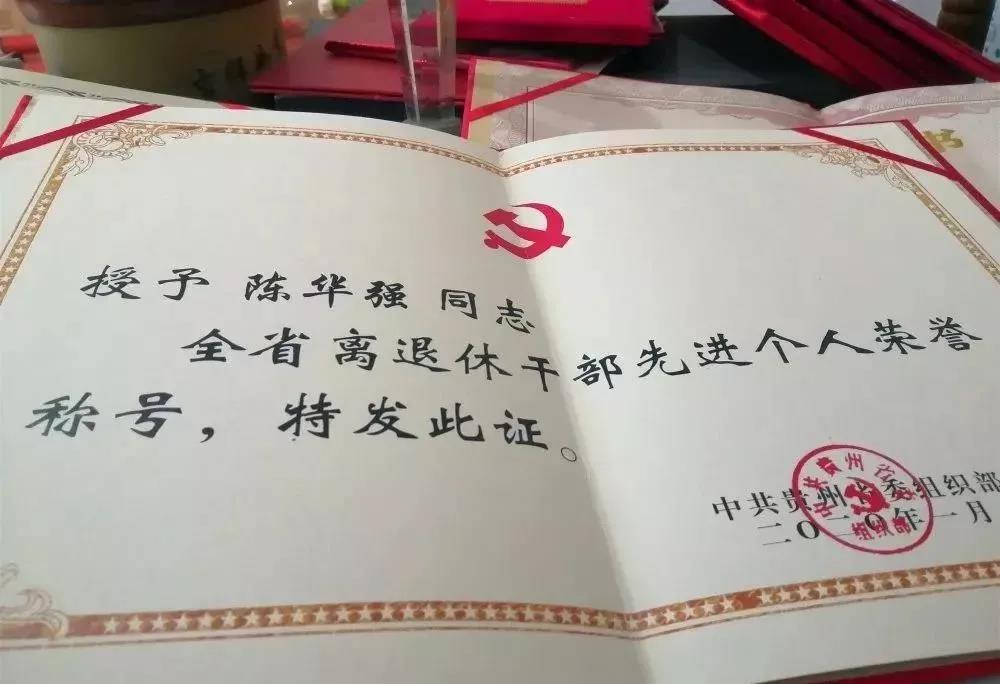 授予 陈华强 同志
全省离退休干部先进个人荣誉
称号，特发此证。
中共贵州省委组织部
二〇二〇年一月
中共贵州省委
组织部
书